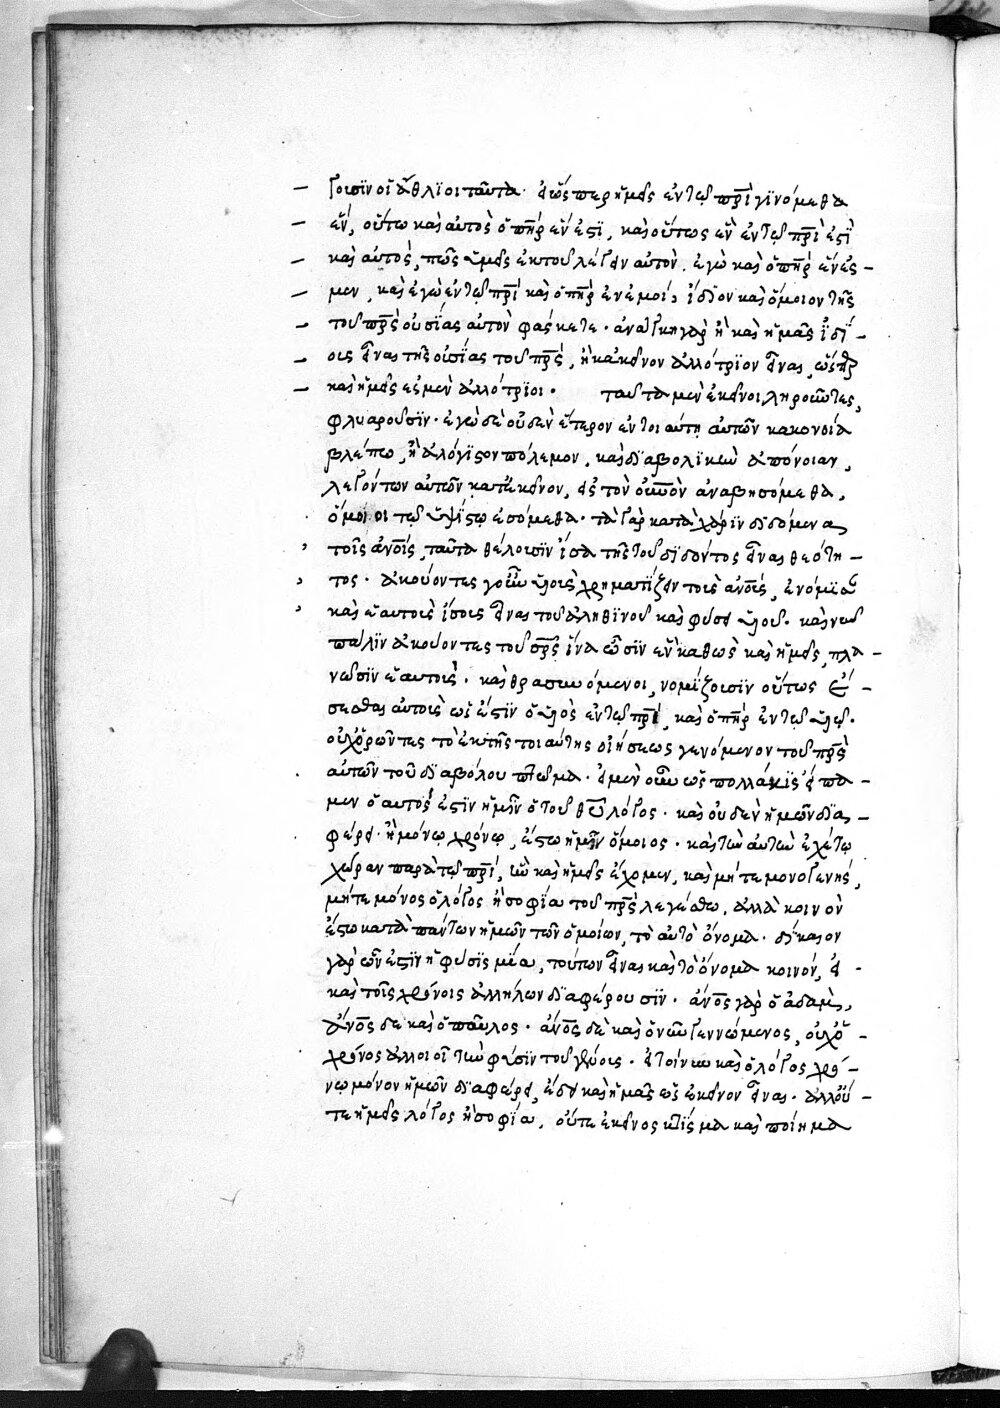 γουσϊν οἱ ἄθλϊοι ταῦτα· εἰ ὥσπερ ἡμεῖς ἐν τῷ πρὶ γϊνόμεθα
ἕν, οὕτω καὶ αὐτὸς ὁ πὴρ ἕν ἐστϊ, καὶ οὕτως ἐν ἐν τῷ πρὶ ἐστὶ
καὶ αὐτός, πῶς ὑμεῖς ἐκ τοῦ λέγειν αὐτὸν, ἐγὼ καὶ ὁ πὴρ ἕν ἐσ-
μεν, καὶ ἐγὼ ἐν τῷ πρὶ καὶ ὁ πὴρ ἐν ἐμοί, ἴδϊον καὶ ὅμοιον τῆς
τοῦ πρς οὐσΐας αὐτὸν φάσκετε· ἀνάγκη γὰρ ἢ καὶ ἡμᾶς ἰδΐ-
ους εἶναι τῆς οὐσΐας τοῦ πρς, ἢ κἀκεῖνον ἀλλότρϊον εἶναι, ὥσπερ
καὶ ἡμεῖς ἐσμεν ἀλλότρϊοι· ταῦτα μὲν ἐκεῖνοι ληροῦντες,
φλυαροῦσϊν· ἐγὼ δὲ οὐδὲν ἕτερον ἐν τοιαύτη αὐτῶν κακονοία
βλέπω, ἢ ἀλόγϊστον τόλμαν, καὶ δϊαβολϊκὴν ἀπόνοιαν,
λεγόντων αὐτῶν κατ' ἐκεῖνον, εἰς τὸν οὐνὸν ἀναβησόμεθα,
ὅμοιοι τῷ ὑψΐστω ἐσόμεθα· τὰ γὰρ κατὰ χάρϊν δϊδόμενα
τοῖς ἀνοῖς, ταῦτα θέλουσϊν ἴσα τῆς τοῦ δϊδόντος εἶναι θεότη-
τος· ἀκούοντες γοῦν υἱοὺς χρηματΐζειν τοὺς ἀνους, ἐνόμϊσαν
καὶ ἑαυτοὺς ἴσους εἶναι τοῦ ἀληθϊνοῦ καὶ φύσει υἱοῦ· καὶ νῦν
πάλϊν ἀκούοντες τοῦ σρς ἵνα ὦσϊν ἓν καθὼς καὶ ἡμεῖς, πλα-
νῶσϊν ἑαυτοὺς· καὶ θρασυνόμενοι, νομΐζουσϊν οὕτως ἔ-
σεσθαι αὐτοὺς ὡς ἐστϊν ὁ υἱὸς ἐν τῷ πρὶ, καὶ ὁ πὴρ ἐν τῷ υἱῷ·
οὐχ ὁρῶντες τὸ ἐκ τῆς τοιαύτης οἰήσεως γενόμενον τοῦ πρς
αὐτῶν τοῦ δϊαβόλου πτῶμα· εἰ μὲν οὖν ὡς πολλάκϊς εἴπα-
μεν ὁ αὐτός ἐστϊν ἡμῖν ὁ τοῦ θῦ λόγος· καὶ οὐδὲν ἡμῶν δϊα-
φέρει· ἢ μόνω χρόνω, ἔστω ἡμῖν ὅμοιος· καὶ τὴν αὐτὴν ἐχέτω
χώραν παρὰ τῷ πρὶ, ἣν καὶ ἡμεῖς ἔχομεν, καὶ μήτε μονογενής,
μήτε μόνος ὁ λόγος ἢ σοφΐα τοῦ πρς λεγέσθω, ἀλλὰ κοινὸν
ἔστω κατὰ πάντων ἡμῶν τῶν ὁμοίων, τὸ αὐτὸ ὄνομα· δΐκαιον
γὰρ ὧν ἐστϊν ἡ φύσϊς μία, τούτων εἶναι καὶ τὸ ὄνομα κοινόν, εἰ
καὶ τοῖς χρόνοις ἀλλήλων δϊαφέρουσϊν· ἄνος γὰρ ὁ ἀδάμ,
ἄνος δὲ καὶ ὁ παῦλος· ἄνος δὲ καὶ ὁ νῦν γεννώμενος, οὐχ ὁ
χρόνος ἀλλοιοῖ τὴν φύσϊν τοῦ γένους· εἰ τοίνυν καὶ ὁ λόγος χρό-
νω μόνον ἡμῶν δϊαφέρει, ἔδει καὶ ἡμᾶς ὡς ἐκεῖνον εἶναι· ἀλλ' οὔ-
τε ἡμεῖς λόγος ἢ σοφΐα, οὔτε ἐκεῖνος κτΐσμα καὶ ποίημα